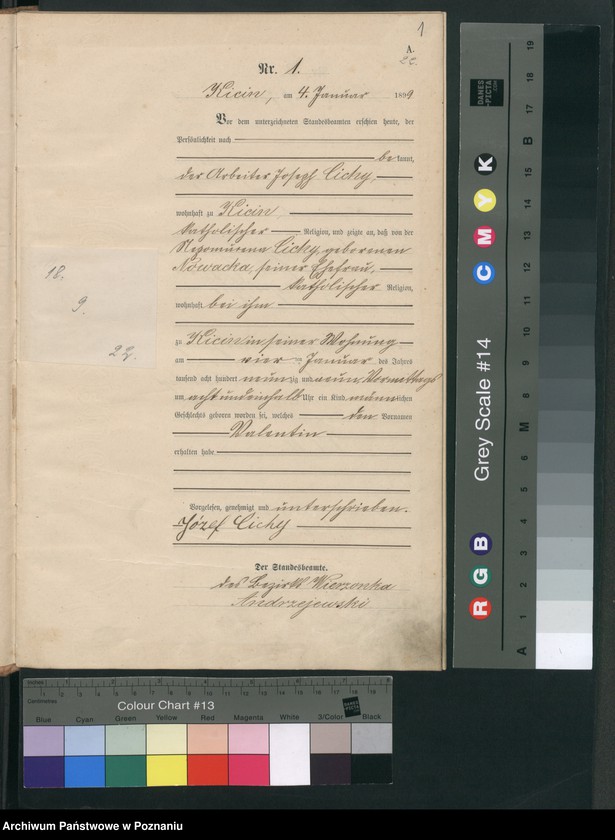 1
A.
Nr. 1.
Kicin, am 4. Januar 1899
Vor dem unterzeichneten Standesbeamten erschien heute, der
Persönlichkeit nach
be kannt,
der Arbeiter Joseph Cichy,
wohnhaft zu Kicin
katholischer Religion, und zeigte an, daß von der
Nepomucena Cichy, geborenen
Nowacka, seiner Ehefrau,
katholischer Religion,
wohnhaft bei ihm
zu Kicin in seiner Wohnung
am vier Januar des Jahres
tausend acht hundert neunzig und neun Vormittags
um acht und einhalb Uhr ein Kind männlichen
Geschlechts geboren worden sei, welches den Vornamen
Valentin
erhalten habe
Vorgelesen, genehmigt und unterschrieben.
Józef Cichy
Der Standesbeamte.
des Bezirks Wierzonka
Andrzejewski
18.
9.
22.
DANES
PICTA
.COM
Grey Scale #14
R G B C M Y K
A 1 2 3 4 5 6 M 8 9 10 11 12 13 14 15 B 17 18 19
Inches 1 2 3 4 5 6 7 8
Centimetres 1 2 3 4 5 6 7 8 9 10 11 12 13 14 15 16 17 18 19
Colour Chart #13
Blue Cyan Green Yellow Red Magenta White 3/Color Black
Archiwum Państwowe w Poznaniu